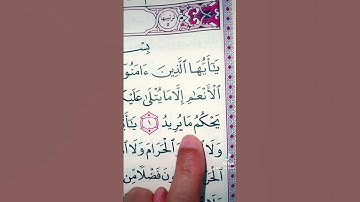 ترتيبها
٥
بِسْ
يَـٰٓأَيُّهَا ٱلَّذِينَ ءَامَنُو
ٱلْأَنْعَـٰمِ إِلَّا مَا يُتْلَىٰ عَلَيْكُ
يَحْكُمُ مَا يُرِيدُ ١ يَـٰٓأَيُّ
وَلَا ٱلْحَرَامَ وَلَا ٱلْ
ٱلْحَرَ نَ فَضْلًا مِّن